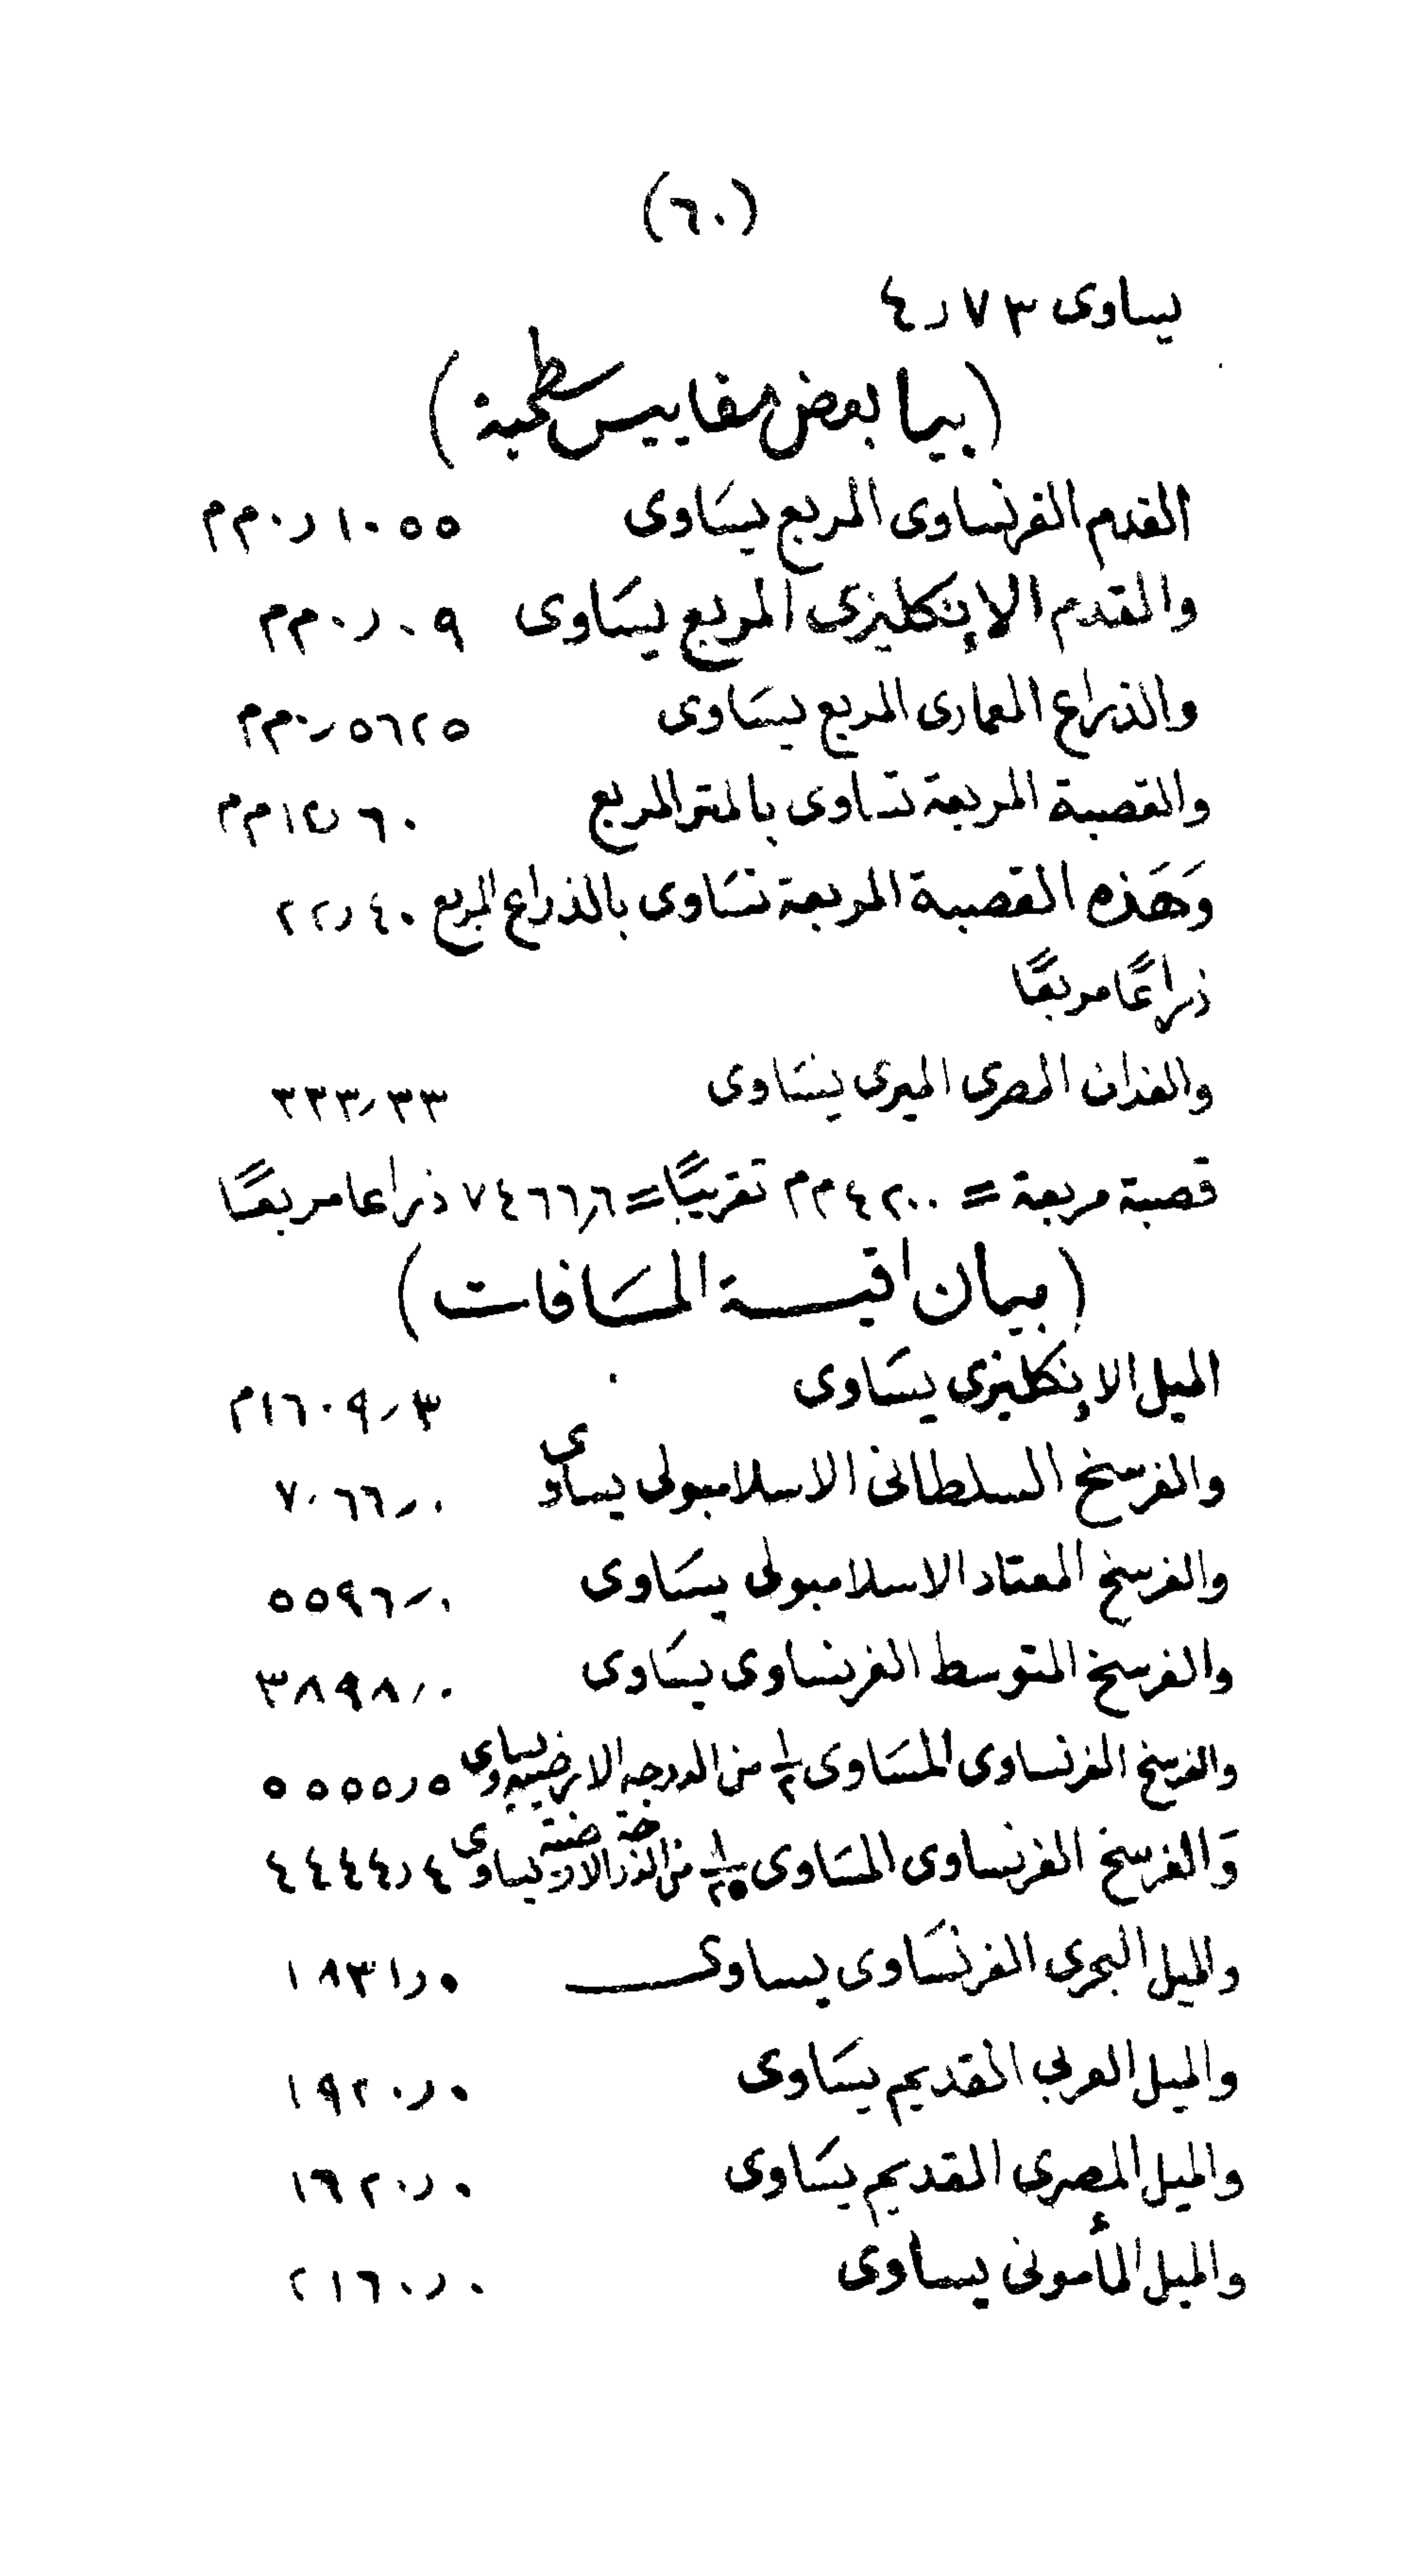 (٦٠)
يساوى ٤ر٧٣
(بيا بعض مقاييس سطحية)
القدم الفرنساوى المربع يسَاوى ٠ر١٠٥٥ م م
والقدم الإنكليزى المربع يسَاوى ٠ر٠٩ م م
والذراع المعمارى المربع يسَاوى ٠ر٥٦٢٥ م م
والقصبة المربعة تساوى بالمتر المربع ١٢ر٦٠ م م
وَهَذه القصبة المربعة تسَاوى بالذراع المربع ٢٢ر٤٠
ذراعًا مربعًا
والفدان المصرى الميرى يسَاوى ٣٣٣ر٣٣
قصبة مربعة = ٤٢٠٠ م م تقريبًا = ٧٤٦٦ر٦ ذراعا مربعًا
(بيان اقيسة المسَافات)
الميل الإنكليزى يسَاوى ١٦٠٩ر٣ م
والفرسخ السلطانى الاسلامبولى يساوى ٧٠٦٦ر٠
والفرسخ المعتاد الاسلامبولى يسَاوى ٥٥٩٦ر٠
والفرسخ المتوسط الفرنساوى يسَاوى ٣٨٩٨ر٠
والفرسخ الفرنساوى المسَاوى ١/٢ من الدرجه الارضيه يساوى ٥٥٥٥ر٥
وَالفرسخ الفرنساوى المسَاوى ١/٢٥ من الدرجة الارضية يساوى ٤٤٤٤ر٤
والميل البحرى الفرنسَاوى يساوى ١٨٣١ر٥
والميل العربى القديم يسَاوى ١٩٢٠ر٠
والميل المصرى القديم يسَاوى ١٦٢٠ر٠
والميل المأمونى يساوى ٢١٦٠ر٠